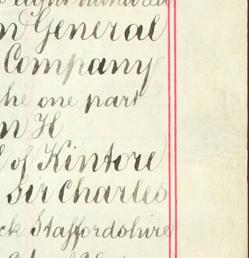 eight hundred
n General
Company
he one part
n H
l of Kintore
Sir Charles
ck Staffordshire